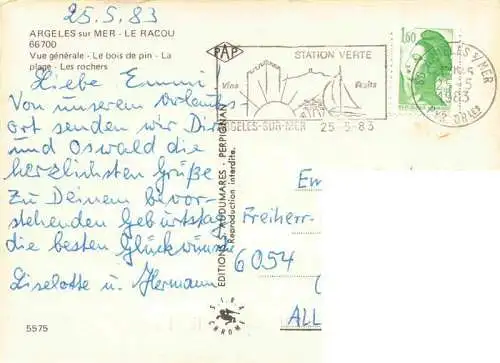 25.5.83
ARGELES sur MER - LE RACOU
66700
Vue générale - Le bois de pin - La
plage - Les rochers
Liebe Emmi!
Von unserem Urlaubs-
ort senden wir Dir
und Oswald die
herzlichsten Grüße
Zu Deinem bevor-
stehenden Geburtstag
die besten Glückwünsche
Liselotte u. Hermann
5575
PAP
EDITIONS S. AUDUMARES - PERPIGNAN
Reproduction interdite.
STATION VERTE
Vins
Fruits
ARGELES-SUR-MER 25-5-83
1,60
1983
Em
Freiherr-
6054
ALL
CHROME